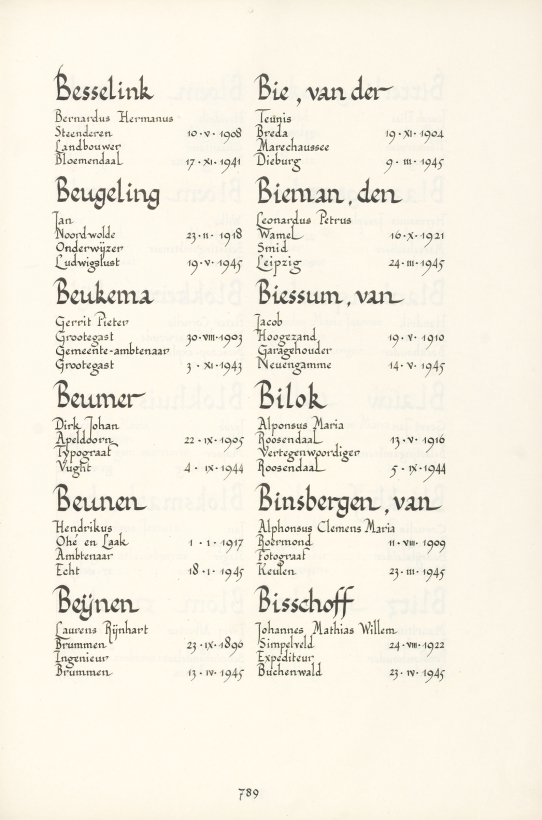 Besselink
Bernardus Hermanus
Steenderen 10·V·1908
Landbouwer
Bloemendaal 17·XI·1941
Beugeling
Jan
Noordwolde 23·II·1918
Onderwijzer
Ludwigslust 19·V·1945
Beukema
Gerrit Pieter
Grootegast 30·VIII·1903
Gemeente-ambtenaar
Grootegast 3·XI·1943
Beumer
Dirk Johan
Apeldoorn 22·IX·1905
Typograaf
Vught 4·IX·1944
Beunen
Hendrikus
Ohé en Laak 1·1·1917
Ambtenaar
Echt 18·1·1945
Beijnen
Laurens Rijnhart
Brummen 23·IX·1896
Ingenieur
Brummen 13·IV·1945
Bie, van der
Teunis
Breda 19·XI·1904
Marechaussee
Dieburg 9·III·1945
Bieman, den
Leonardus Petrus
Wamel 16·X·1921
Smid
Leipzig 24·III·1945
Biessum, van
Jacob
Hoogezand 19·V·1910
Garagehouder
Neuengamme 14·V·1945
Bilok
Alponsus Maria
Roosendaal 13·V·1916
Vertegenwoordiger
Roosendaal 5·IX·1944
Binsbergen, van
Alphonsus Clemens Maria
Roermond 11·VIII·1909
Fotograaf
Keulen 23·III·1945
Bisschoff
Johannes Mathias Willem
Simpelveld 24·VIII·1922
Expediteur
Buchenwald 23·IV·1945
789